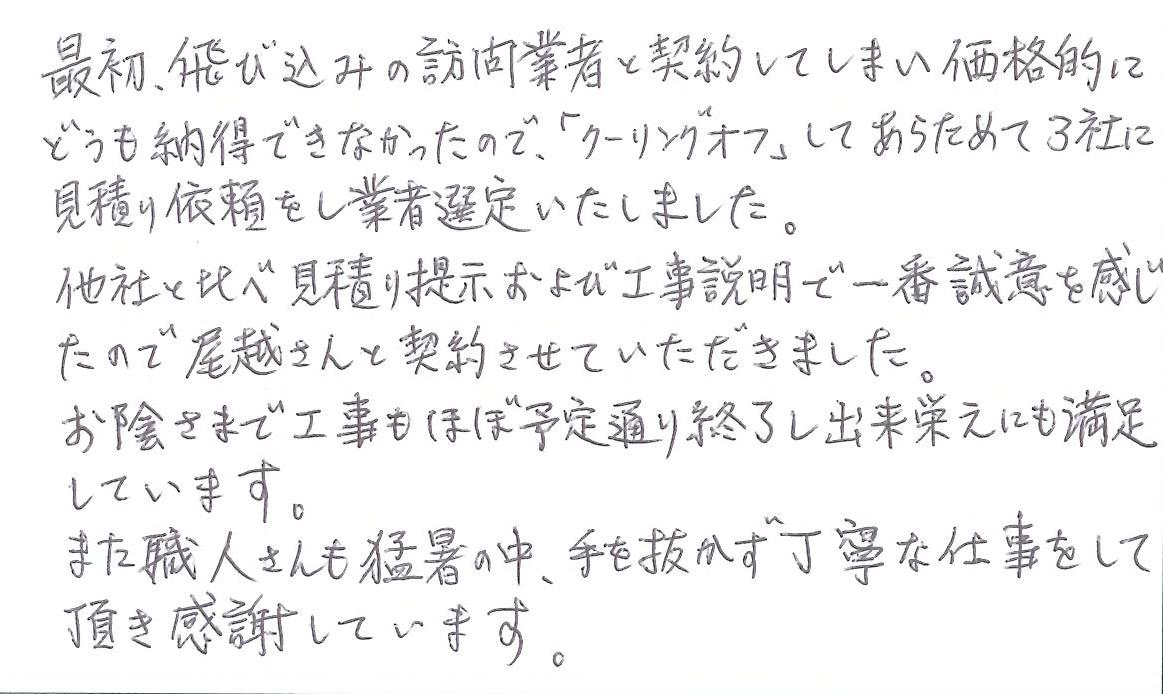 最初、飛び込みの訪問業者と契約してしまい価格的に
どうも納得できなかったので、「クーリングオフ」してあらためて3社に
見積り依頼をし業者選定いたしました。
他社と比べ見積り提示および工事説明で一番誠意を感じ
たので尾越さんと契約させていただきました。
お陰さまで工事もほぼ予定通り終了し出来栄えにも満足
しています。
また職人さんも猛暑の中、手を抜かず丁寧な仕事をして
頂き感謝しています。